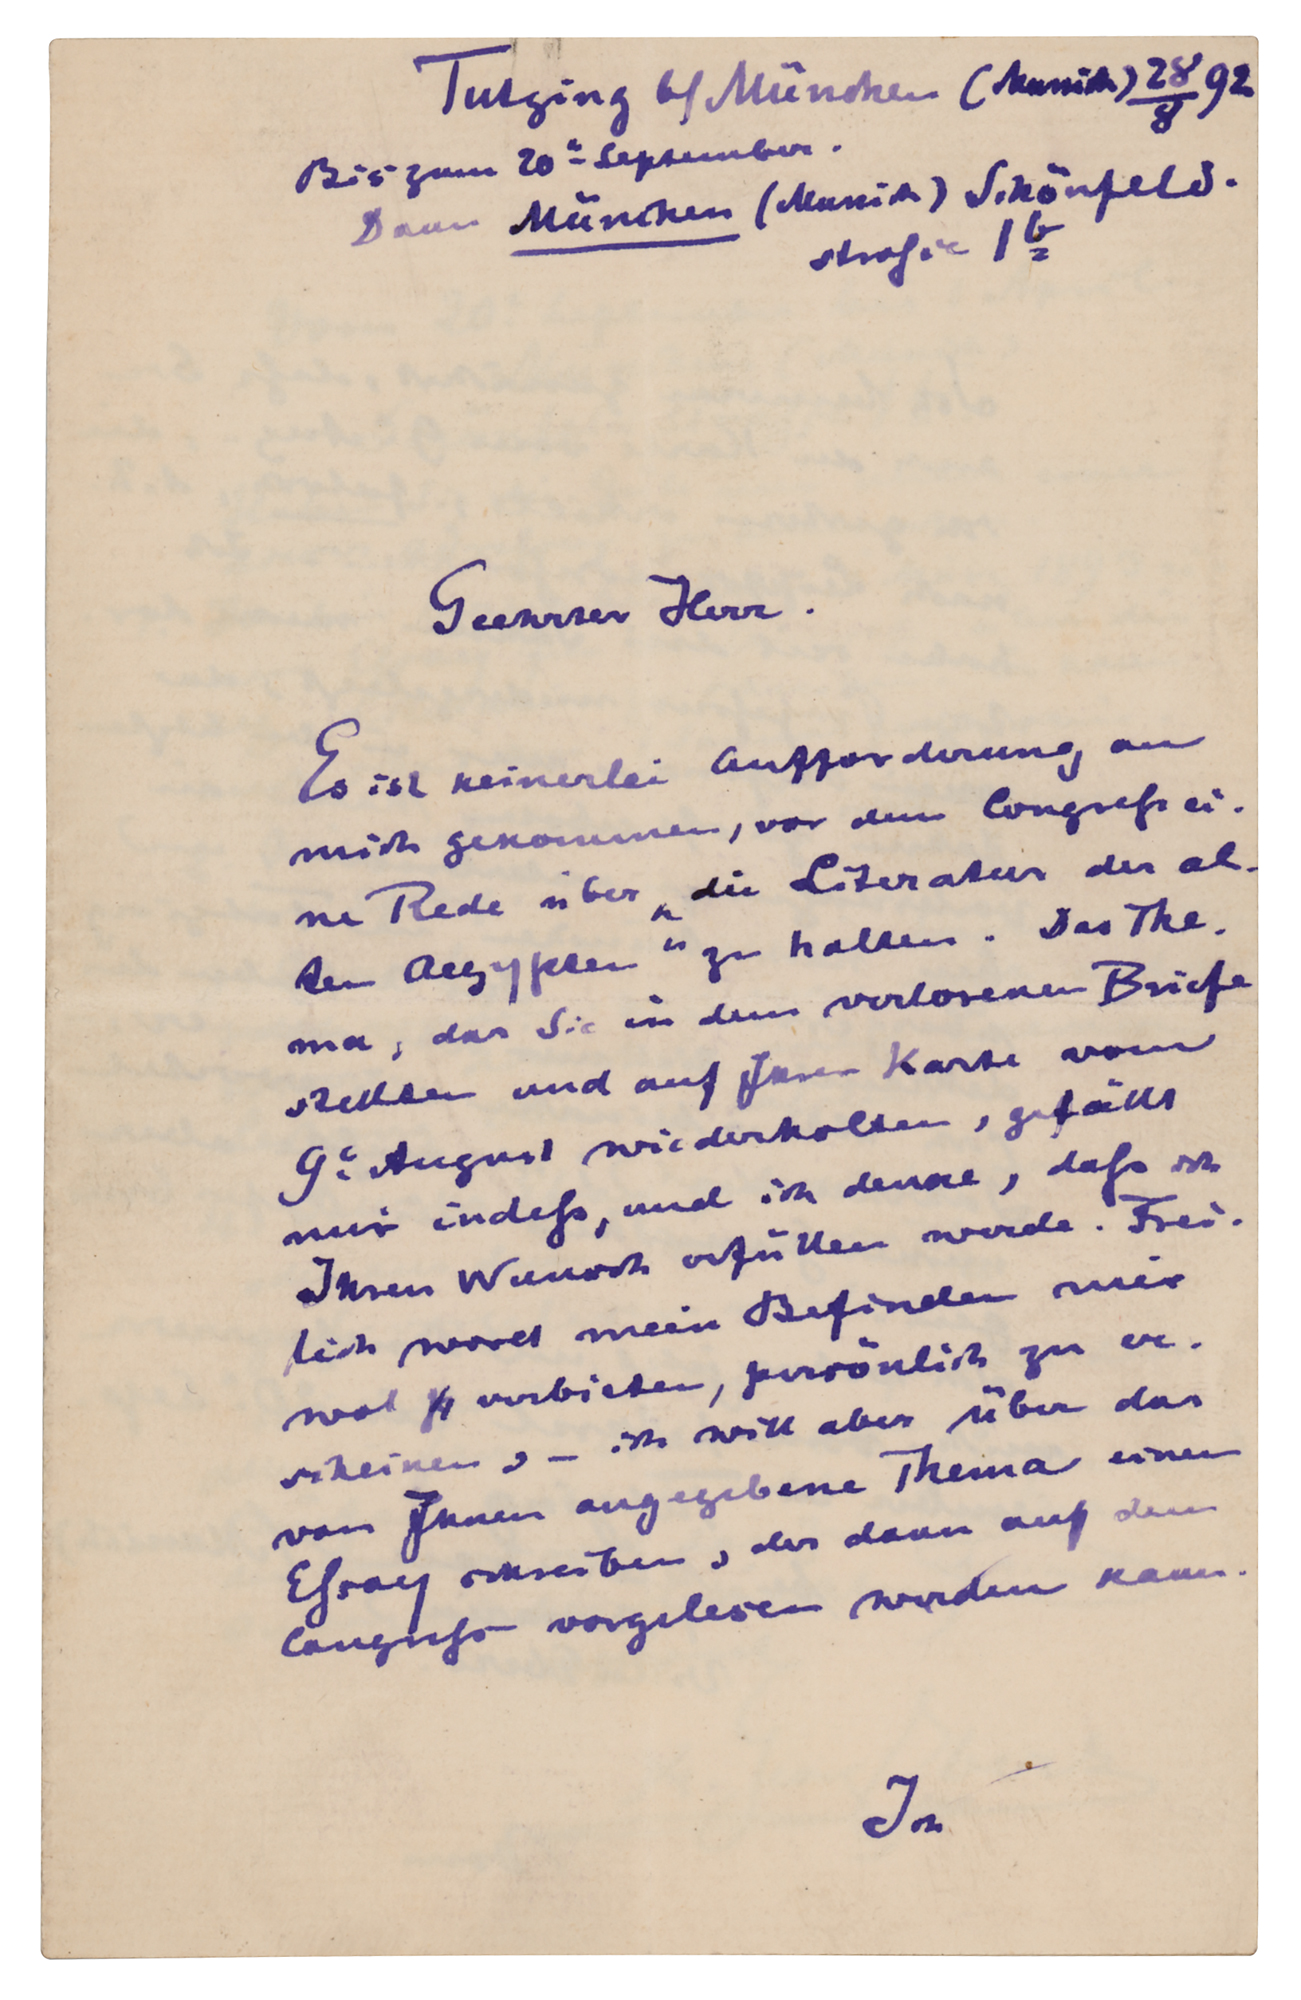 Tutzing b/ München (Munich) 28/8 92
Bis zum 20t September.
Dann München (Munich) Schönfeld-
straße 1b
Geehrter Herr.
Es ist keinerlei Aufforderung an
mich gekommen, vor dem Congreß ei-
ne Rede über „die Literatur der al-
ten Aegypter“ zu halten. Das The-
ma, das Sie in dem verlorenen Briefe
stellten und auf Ihrer Karte vom
9t August wiederholten, gefällt
mir indeß, und ich denke, daß ich
Ihren Wunsch erfüllen werde. Frei-
lich word mein Befinden mir
wol verbieten, persönlich zu er-
scheinen, – ich will aber über das
von Ihnen angegebene Thema einen
Eßay schreiben, der dann auf dem
Congreß vorgelesen werden kann.
Ich